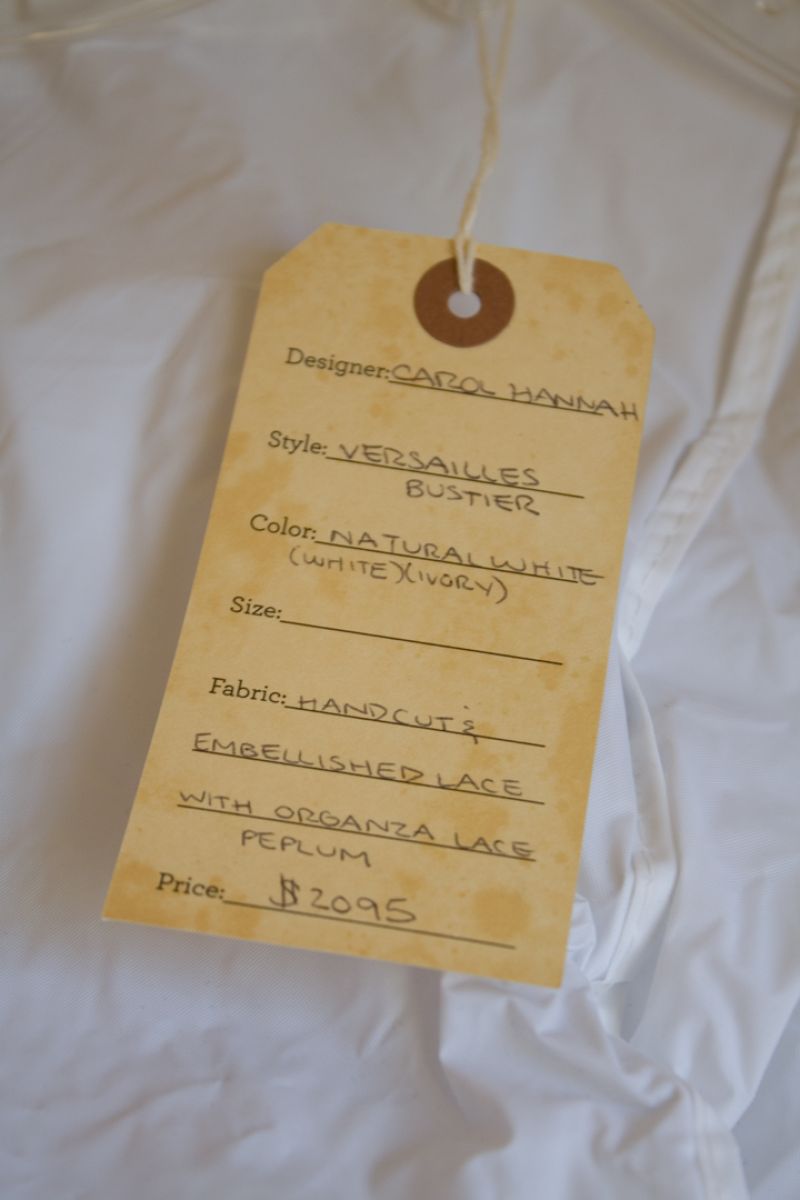 Designer: CAROL HANNAH
Style: VERSAILLES
BUSTIER
Color: NATURAL WHITE
(WHITE)(IVORY)
Size:
Fabric: HANDCUT &
EMBELLISHED LACE
WITH ORGANZA LACE
PEPLUM
Price: $2095